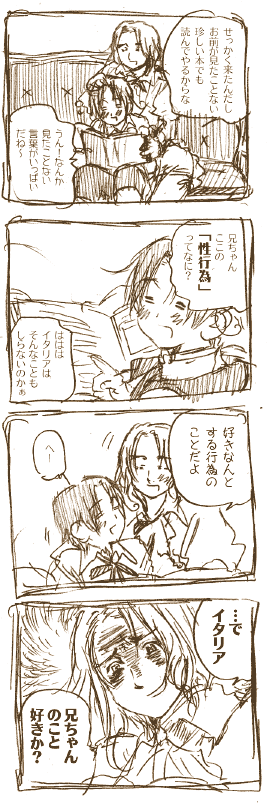 せっかく来たんだし
お前が見たことない
珍しい本でも
読んでやるからな
うん!なんか
見たことない
言葉がいっぱい
だね~
兄ちゃん
ここの
「性行為」
ってなに?
ははは
イタリアは
そんなことも
しらないのかぁ
好きなんと
する行為の
ことだよ
へー
…で
イタリア
兄ちゃん
のこと
好きか?